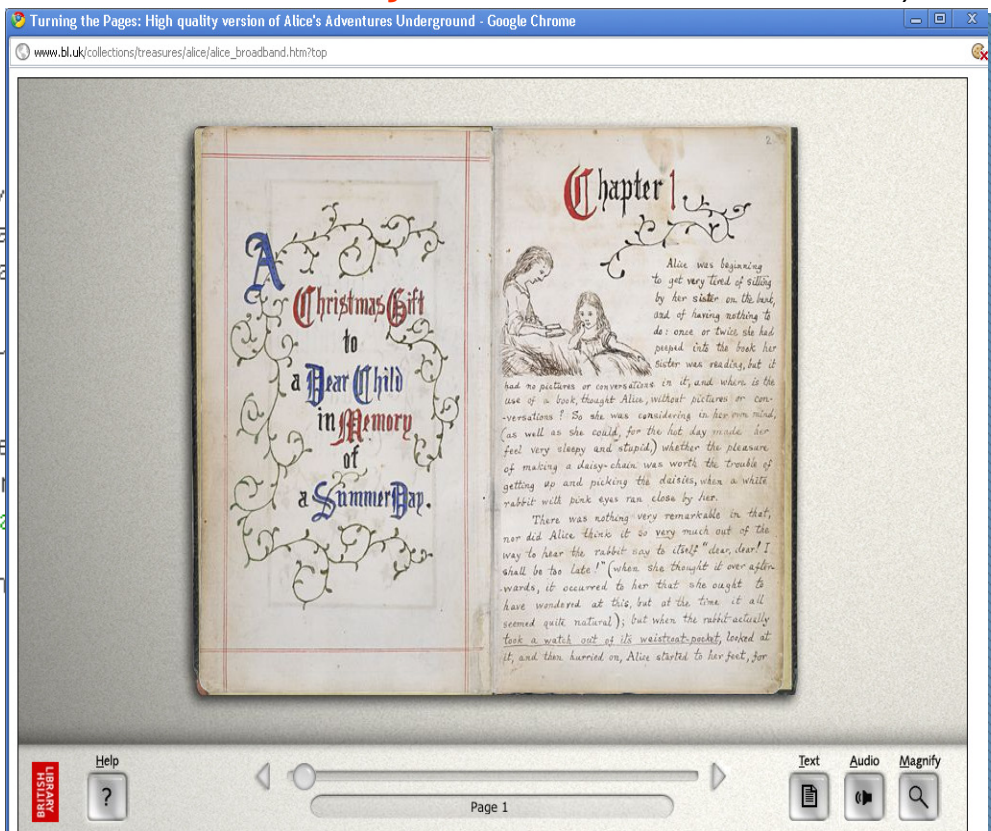 Turning the Pages: High quality version of Alice's Adventures Underground - Google Chrome
www.bl.uk/collections/treasures/alice/alice_broadband.htm?top
A
Christmas Gift
to
a Dear Child
in Memory
of
a Summer Day.
2.
Chapter 1
Alice was beginning
to get very tired of sitting
by her sister on the bank,
and of having nothing to
do: once or twice she had
peeped into the book her
sister was reading, but it
had no pictures or conversations in it, and where is the
use of a book, thought Alice, without pictures or con-
-versations? So she was considering in her own mind,
(as well as she could, for the hot day made her
feel very sleepy and stupid,) whether the pleasure
of making a daisy-chain was worth the trouble of
getting up and picking the daisies, when a white
rabbit with pink eyes ran close by her.
There was nothing very remarkable in that,
nor did Alice think it so very much out of the
way to hear the rabbit say to itself "dear, dear! I
shall be too late!" (when she thought it over after-
-wards, it occurred to her that she ought to
have wondered at this, but at the time it all
seemed quite natural); but when the rabbit actually
took a watch out of its waistcoat-pocket, looked at
it, and then hurried on, Alice started to her feet, for
LIBRARY
BRITISH
Help
?
Page 1
Text
Audio
Magnify